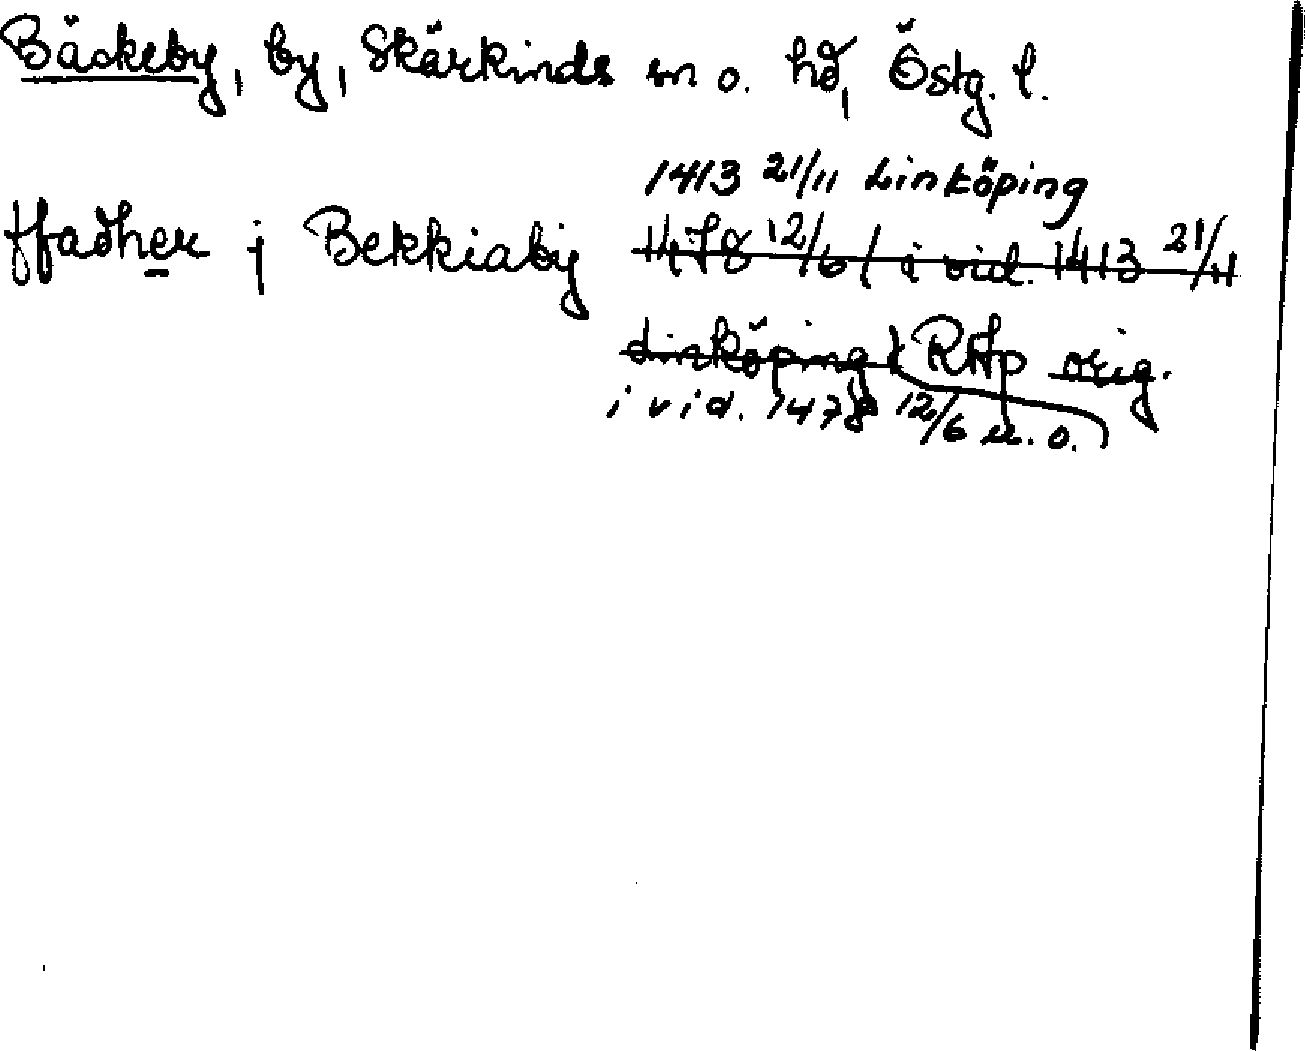 Bäckeby, by, Skärkinds sn o. hd, Östg. l.
1413 21/11 Linköping
ffadher j Bekkiaby 1478 12/6 ( i vid. 1413 21/11
Linköping) RAp orig.
i vid. 1478 12/6 u. o.